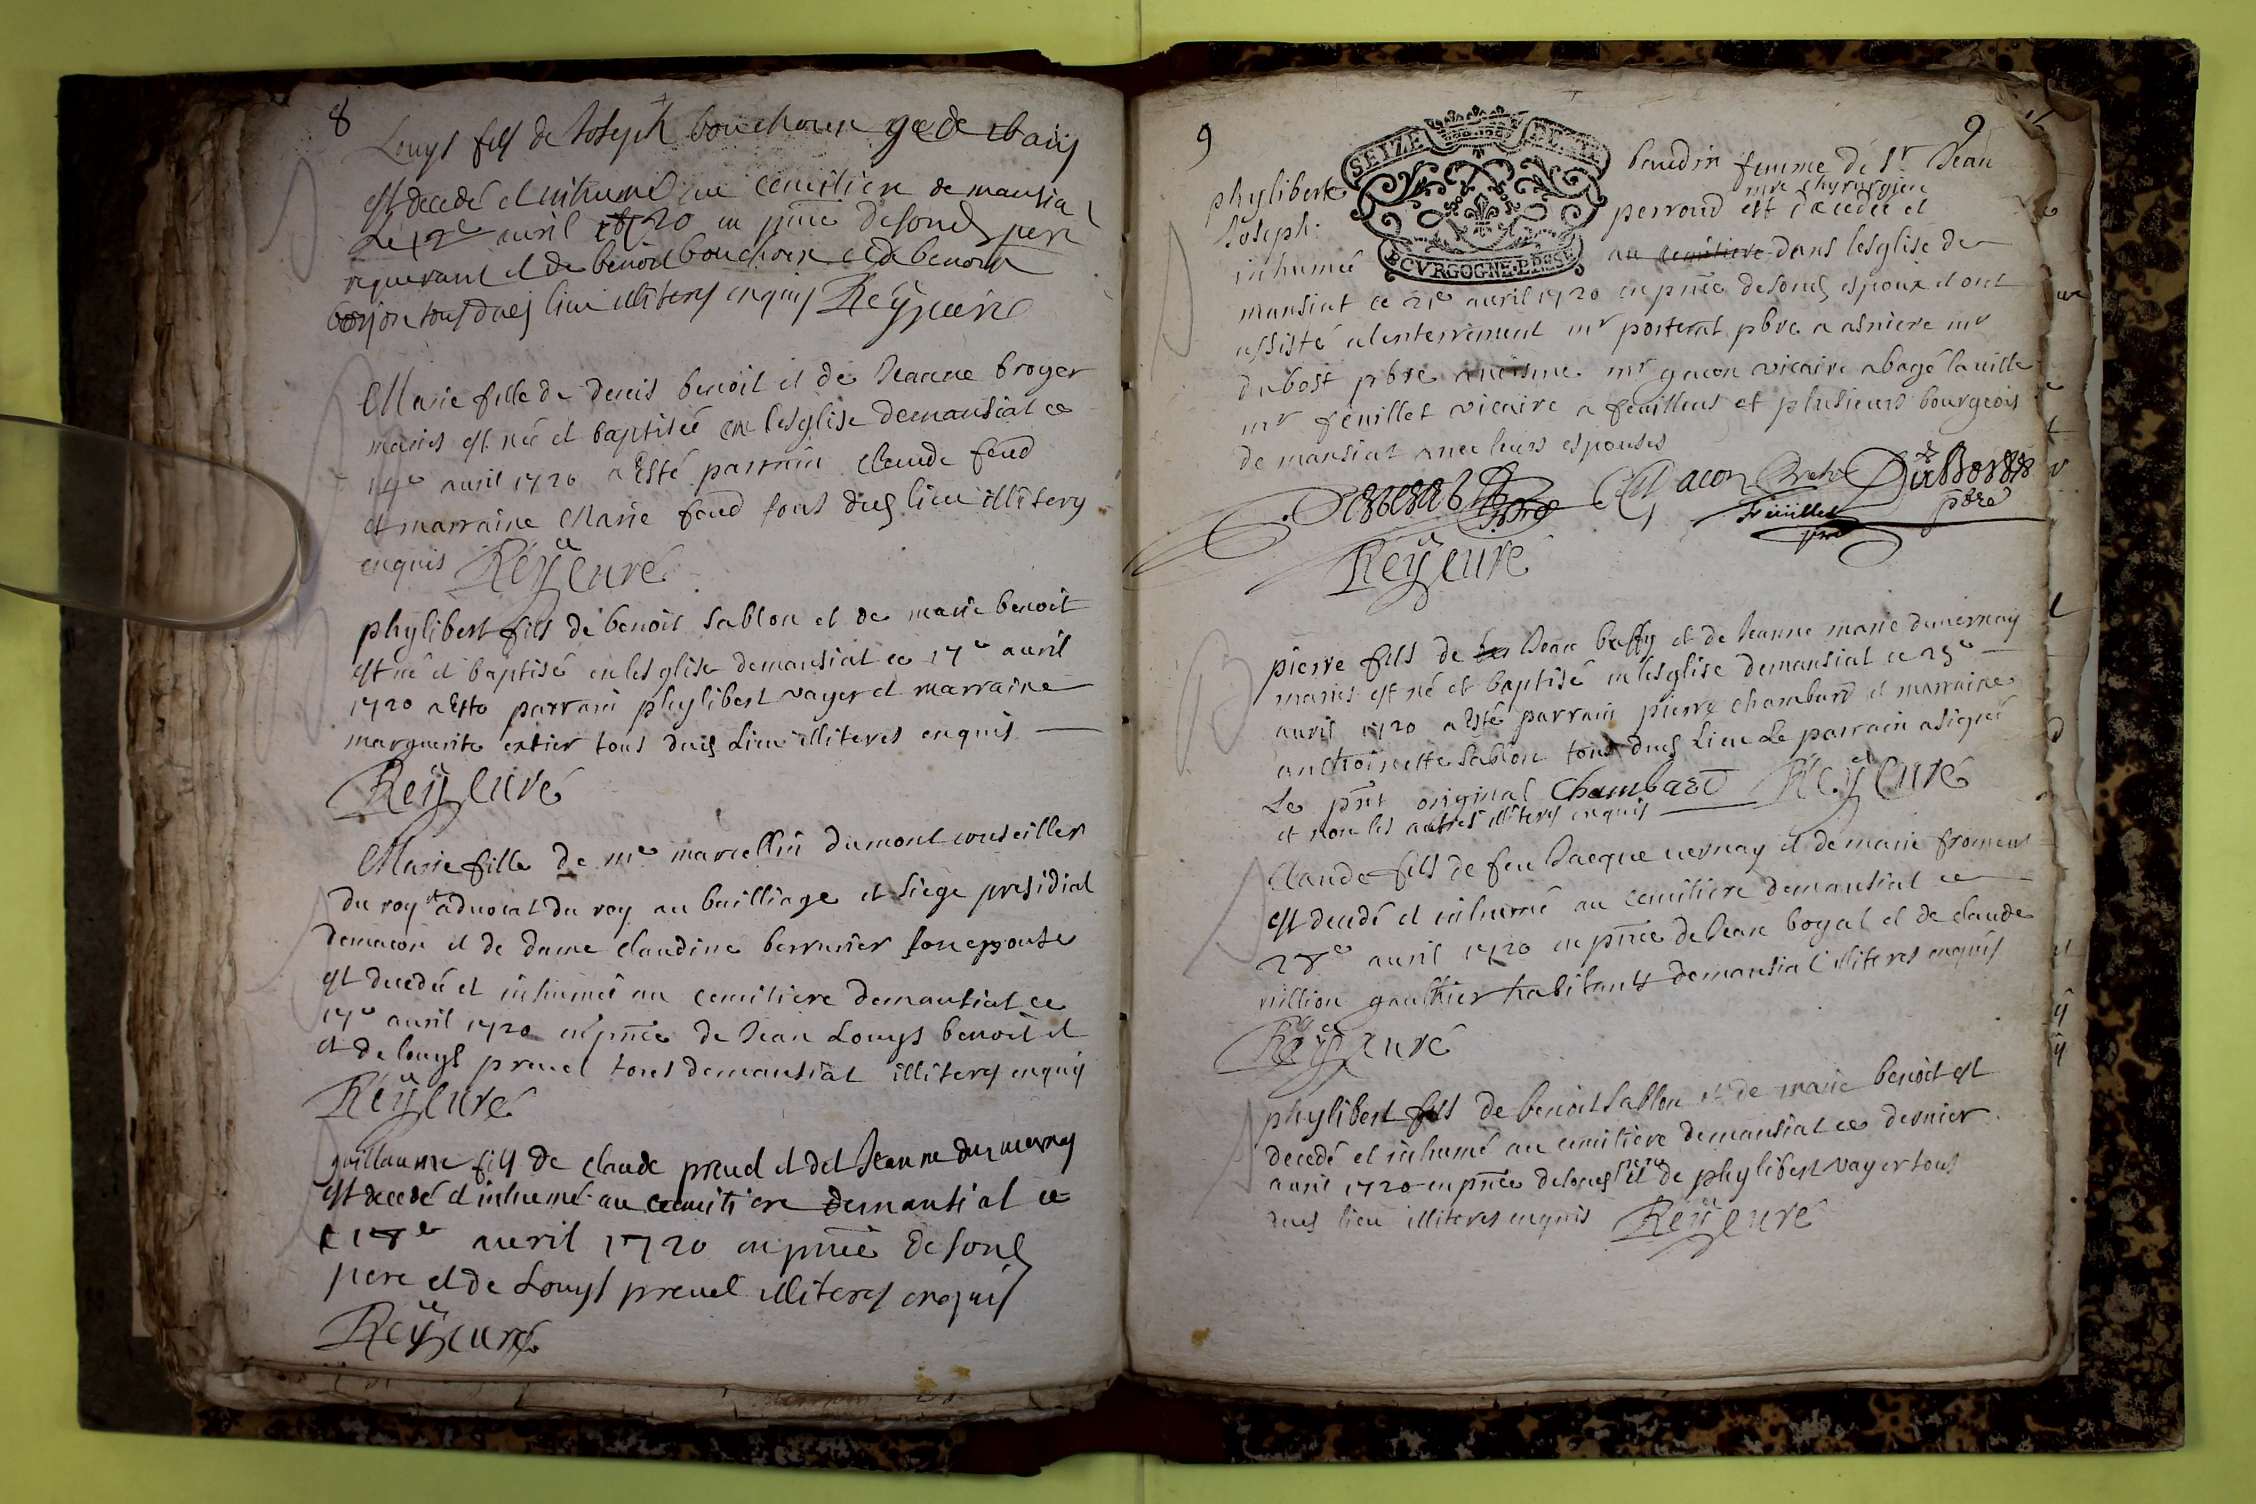 8
Louys fils de Joseph bouchoux
est decedé et inhumé au cemitiere de mansia
Le 12e avril 1720 en pnce desond pere
requerant et de benoit bouchoux et de benoit
borjon tous dud lieu illiteres enquis Reÿ curé
Marie fille de denis benoit et de Jeanne broyer
maries est née et baptisée en lesglise demansiat ce
14e avril 1720 a Esté parrain claude feud
et marraine Marie feud tous dud lieu illiterés
enquis Reÿ curé
phylibert fils de benoit sablon et de marie benoit
est né et baptisé en lesglise demansiat ce 17e avril
1720 a Esté parrain phylibert vayer et marraine
marguerite entier tous dud Lieu illiteres enquis
Reÿ curé
Marie fille de me marcellin dumont conseiller
du roy et advocat du roy au bailliage et siege presidial
demacon et de dame claudine berruier son epouse
est decedée et inhumée au cemitiere demansiat ce
17e avril 1720 en pnce de Jean Louys benoit et
et de louys preuel tous demansiat illiteres enquis
Reÿ curé
guillaume fils de claude preuel et de Jeanne duvernay
est decedé et inhumé au cemitiere demansiat ce
18e avril 1720 en pnce de sond
pere et de Louys preuel illiteres enquis
Reÿ curé
9 9
SEIZE DEN
BOVRGOGNE BRESSE
phyliberte baudin femme de Sr Jean
mre chyrurgien
Joseph perroud est decedée et
inhumée au cemitiere dans lesglise de
mansiat ce 21e avril 1720 en pnce de sond espoux et ont
assisté a lenterrement mr porterat pbre a asniere mr
dubost pbre mr gacon vicaire a bagé la ville
mr feuillet vicaire a feuillens et plusieurs bourgeois
de mansiat avec leurs espouses
Gacon Dubost
Feuillet pbre
Reÿ curé
pierre fils de Jean buffy et de Jeanne marie duvernay
maries est né et baptisé en lesglise demansiat ce 25e
avril 1720 a Esté parrain pierre chambard et marraine
anthoinette sablon tous dud Lieu Le parrain a signé
Le pnt original Chambard Reÿ curé
et non les autres illiteres enquis
Claude fils de feu Jacque vernay et de marie froment
est decedé et inhumé au cemitiere demansiat ce
28e avril 1720 en pnce de Jean boyat et de claude
million gaulthier habitants demansiat illiteres enquis
Reÿ curé
phylibert fils de benoit sablon et de marie benoit est
decedé et inhumé au cemitiere demansiat ce dernier
avril 1720 en pnce desond pere et de phylibert vayer tous
dud lieu illiteres enquis Reÿ curé